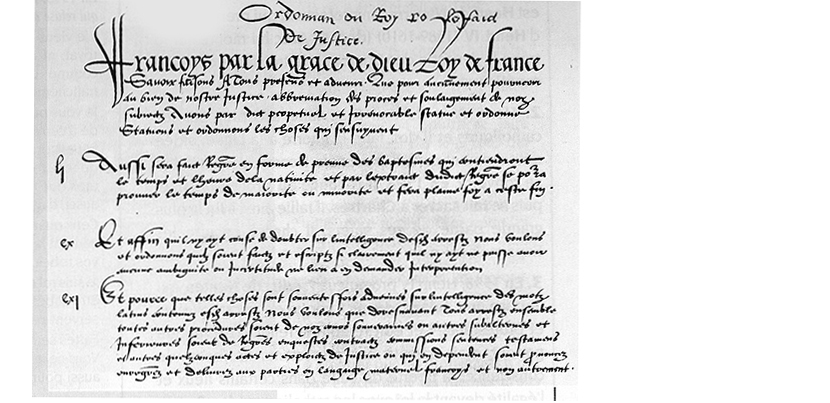 Ordonnan du Roy sur le faict
De Justice.
Francoys par la grace de dieu Roy de france
Scavoir faisons A Tous presens et advenir Que pour aucunement pourveoir
au bien de nostre Justice abbreviation des proces et soulaigement de noz
subiectz Avons par edict perpetuel et irrevocable statue et ordonne
Statuons et ordonnons les choses qui sensuyvent
li Aussi sera faict Regre en forme de preuve des baptesmes qui contiendront
le temps et lheure dela nativite et par lextraict dudict Regre se pora
prouver le temps de maiorite ou minorite et fera plaine foy a ceste fin.
cx Et affin quil ny ayt cause de doubter sur lintelligence desdz arrestz Nous voulons
et ordonnons quilz soient faictz et escriptz si clairement quil ny ayt ne puisse avoir
aucune ambiguite ou Incertitude ne lieu a en demander Interpretation
cxi Et pource que telles choses sont souventesfois advenues sur lintelligence des motz
latins contenuz esdz arrestz Nous voulons que doresnavant Tous arrestz ensemble
toutes autres procedures soient de noz cours souveraines ou autres subalternes et
Inferieures soient de Regres enquestes contractz commissions sentences testamens
et autres quelzconques actes et exploictz de Justice ou qui en dependent soient prononcez
enregrez et delivrez aux parties en langage maternel francoys et non autrement.